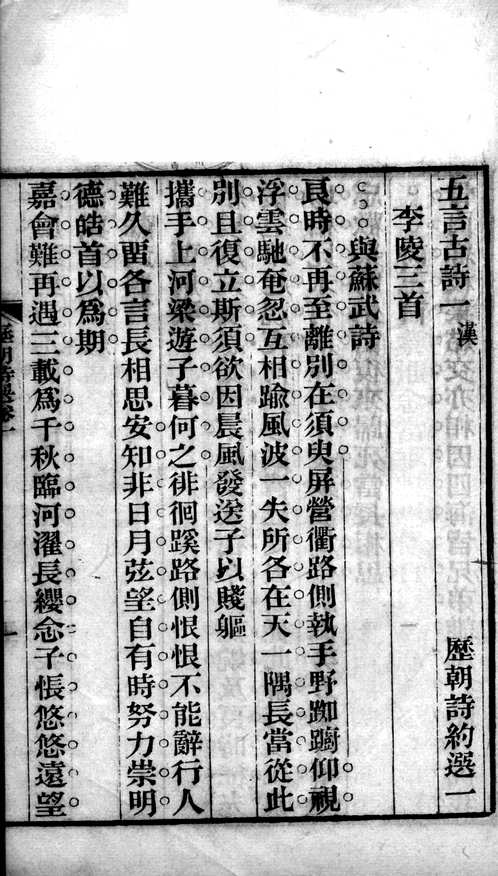 五言古詩一 漢 歷朝詩約選一
李陵三首
與蘇武詩
良時不再至離別在須臾屏營衢路側執手野踟躕仰視
浮雲馳奄忽互相踰風波一失所各在天一隅長當從此
別且復立斯須欲因晨風發送子以賤軀
攜手上河梁遊子暮何之徘徊蹊路側悢悢不能辭行人
難久畱各言長相思安知非日月弦望自有時努力崇明
德皓首以爲期
嘉會難再遇三載爲千秋臨河濯長纓念子悵悠悠遠望